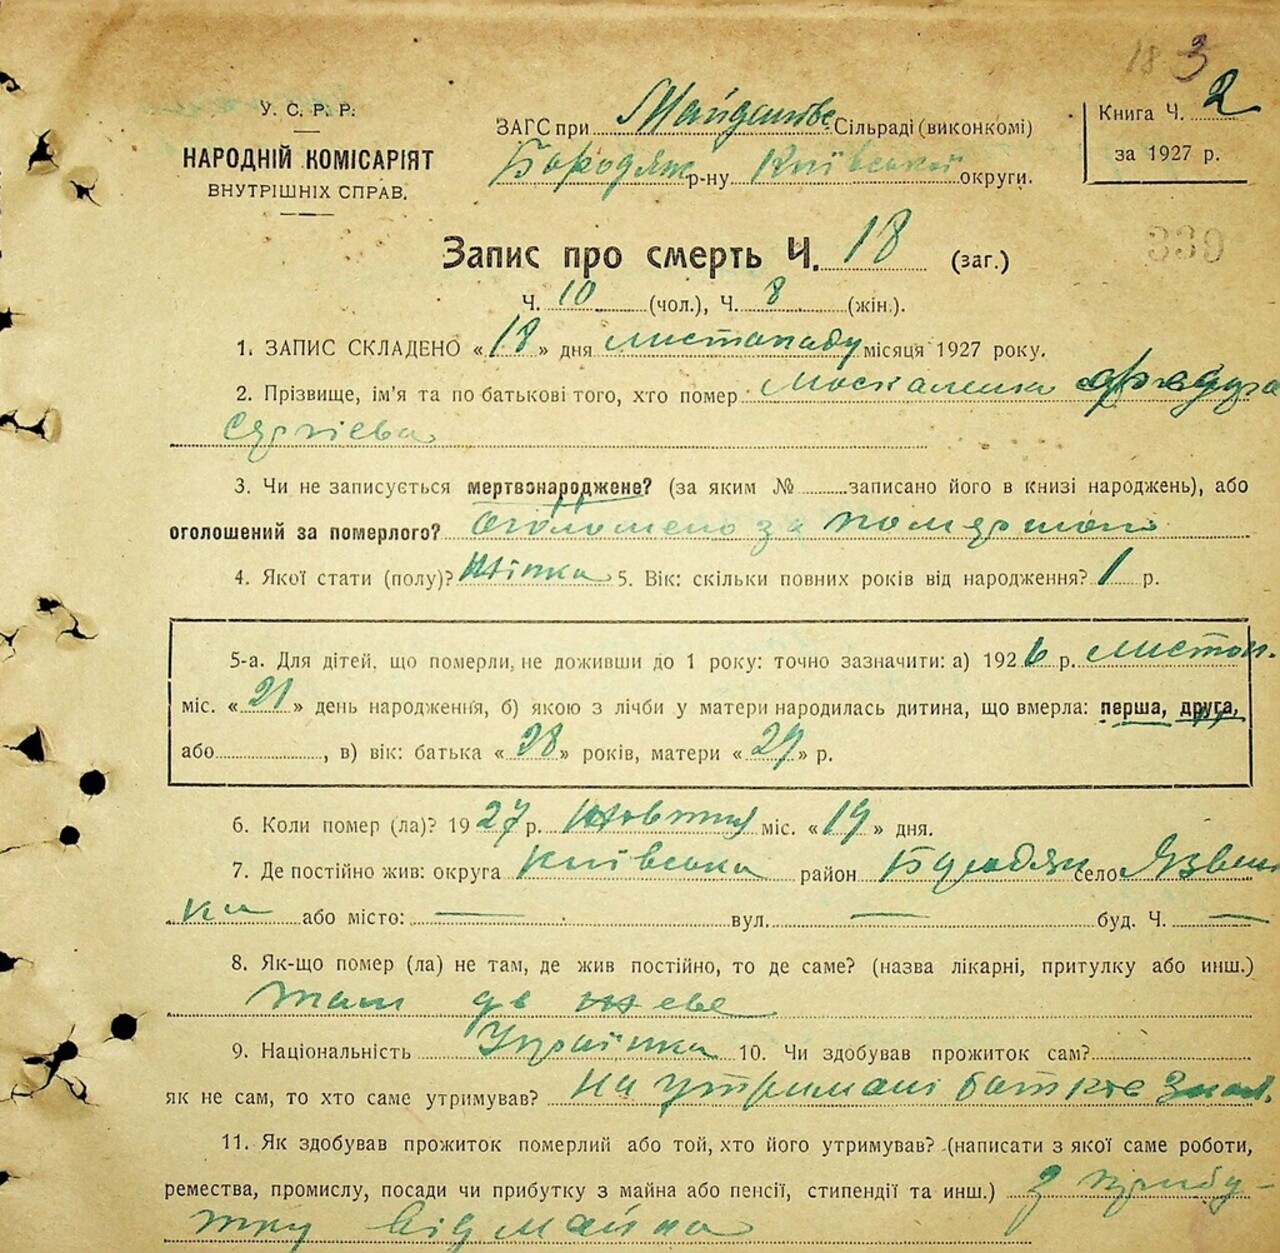 18 3
У. С. Р. Р.
НАРОДНІЙ КОМІСАРІЯТ
ВНУТРІШНІХ СПРАВ.
ЗАГС при Сільраді (виконкомі)
Бородян р-ну Київської округи.
Книга Ч. 2
за 1927 р.
Запис про смерть Ч. 18 (заг.)
Ч. 10 (чол.), Ч. 8 (жін.).
1. ЗАПИС СКЛАДЕНО «18» дня листопаду місяця 1927 року.
2. Прізвище, ім'я та по батькові того, хто помер Москаленка
3. Чи не записується мертвонароджене? (за яким № записано його в книзі народжень), або
оголошений за померлого? Оголошено за
4. Якої стати (полу)? Жінка 5. Вік: скільки повних років від народження? 1 р.
5-а. Для дітей, що померли, не доживши до 1 року: точно зазначити: а) 1926 р. листоп.
міс. «21» день народження, б) якою з лічби у матери народилась дитина, що вмерла: перша, друга,
або , в) вік: батька «28» років, матери «29» р.
6. Коли помер (ла)? 1927 р. Жовтня міс. «19» дня.
7. Де постійно жив: округа Київська район село Язвин
ка або місто: — вул. — буд. Ч. —
8. Як-що помер (ла) не там, де жив постійно, то де саме? (назва лікарні, притулку або инш.)
там де жеве
9. Національність Українка 10. Чи здобував прожиток сам?
як не сам, то хто саме утримував? На утримані
11. Як здобував прожиток померлий або той, хто його утримував? (написати з якої саме роботи,
ремества, промислу, посади чи прибутку з майна або пенсії, стипендії та инш.) З прибу-
тку від майна